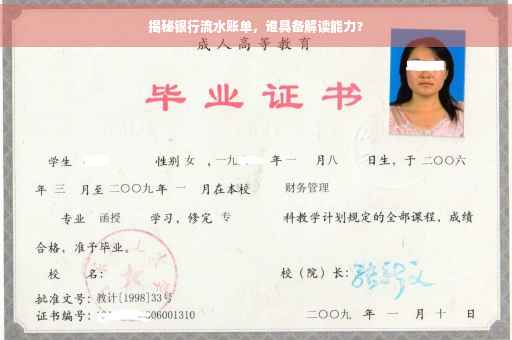 揭秘银行流水账单，谁具备解读能力？
成人高等教育
毕业证书
学生 性别 女 ，一九 年一 月八 日生，于二〇〇六
年 三 月至二〇〇九年 一 月在本校 财务管理
专业 函授 学习，修完 专 科教学计划规定的全部课程，成绩
合格，准予毕业。
校 名： 校（院）长：
批准文号：教计[1998]33号
证书编号： 06001310 二〇〇九 年 一 月 十 日